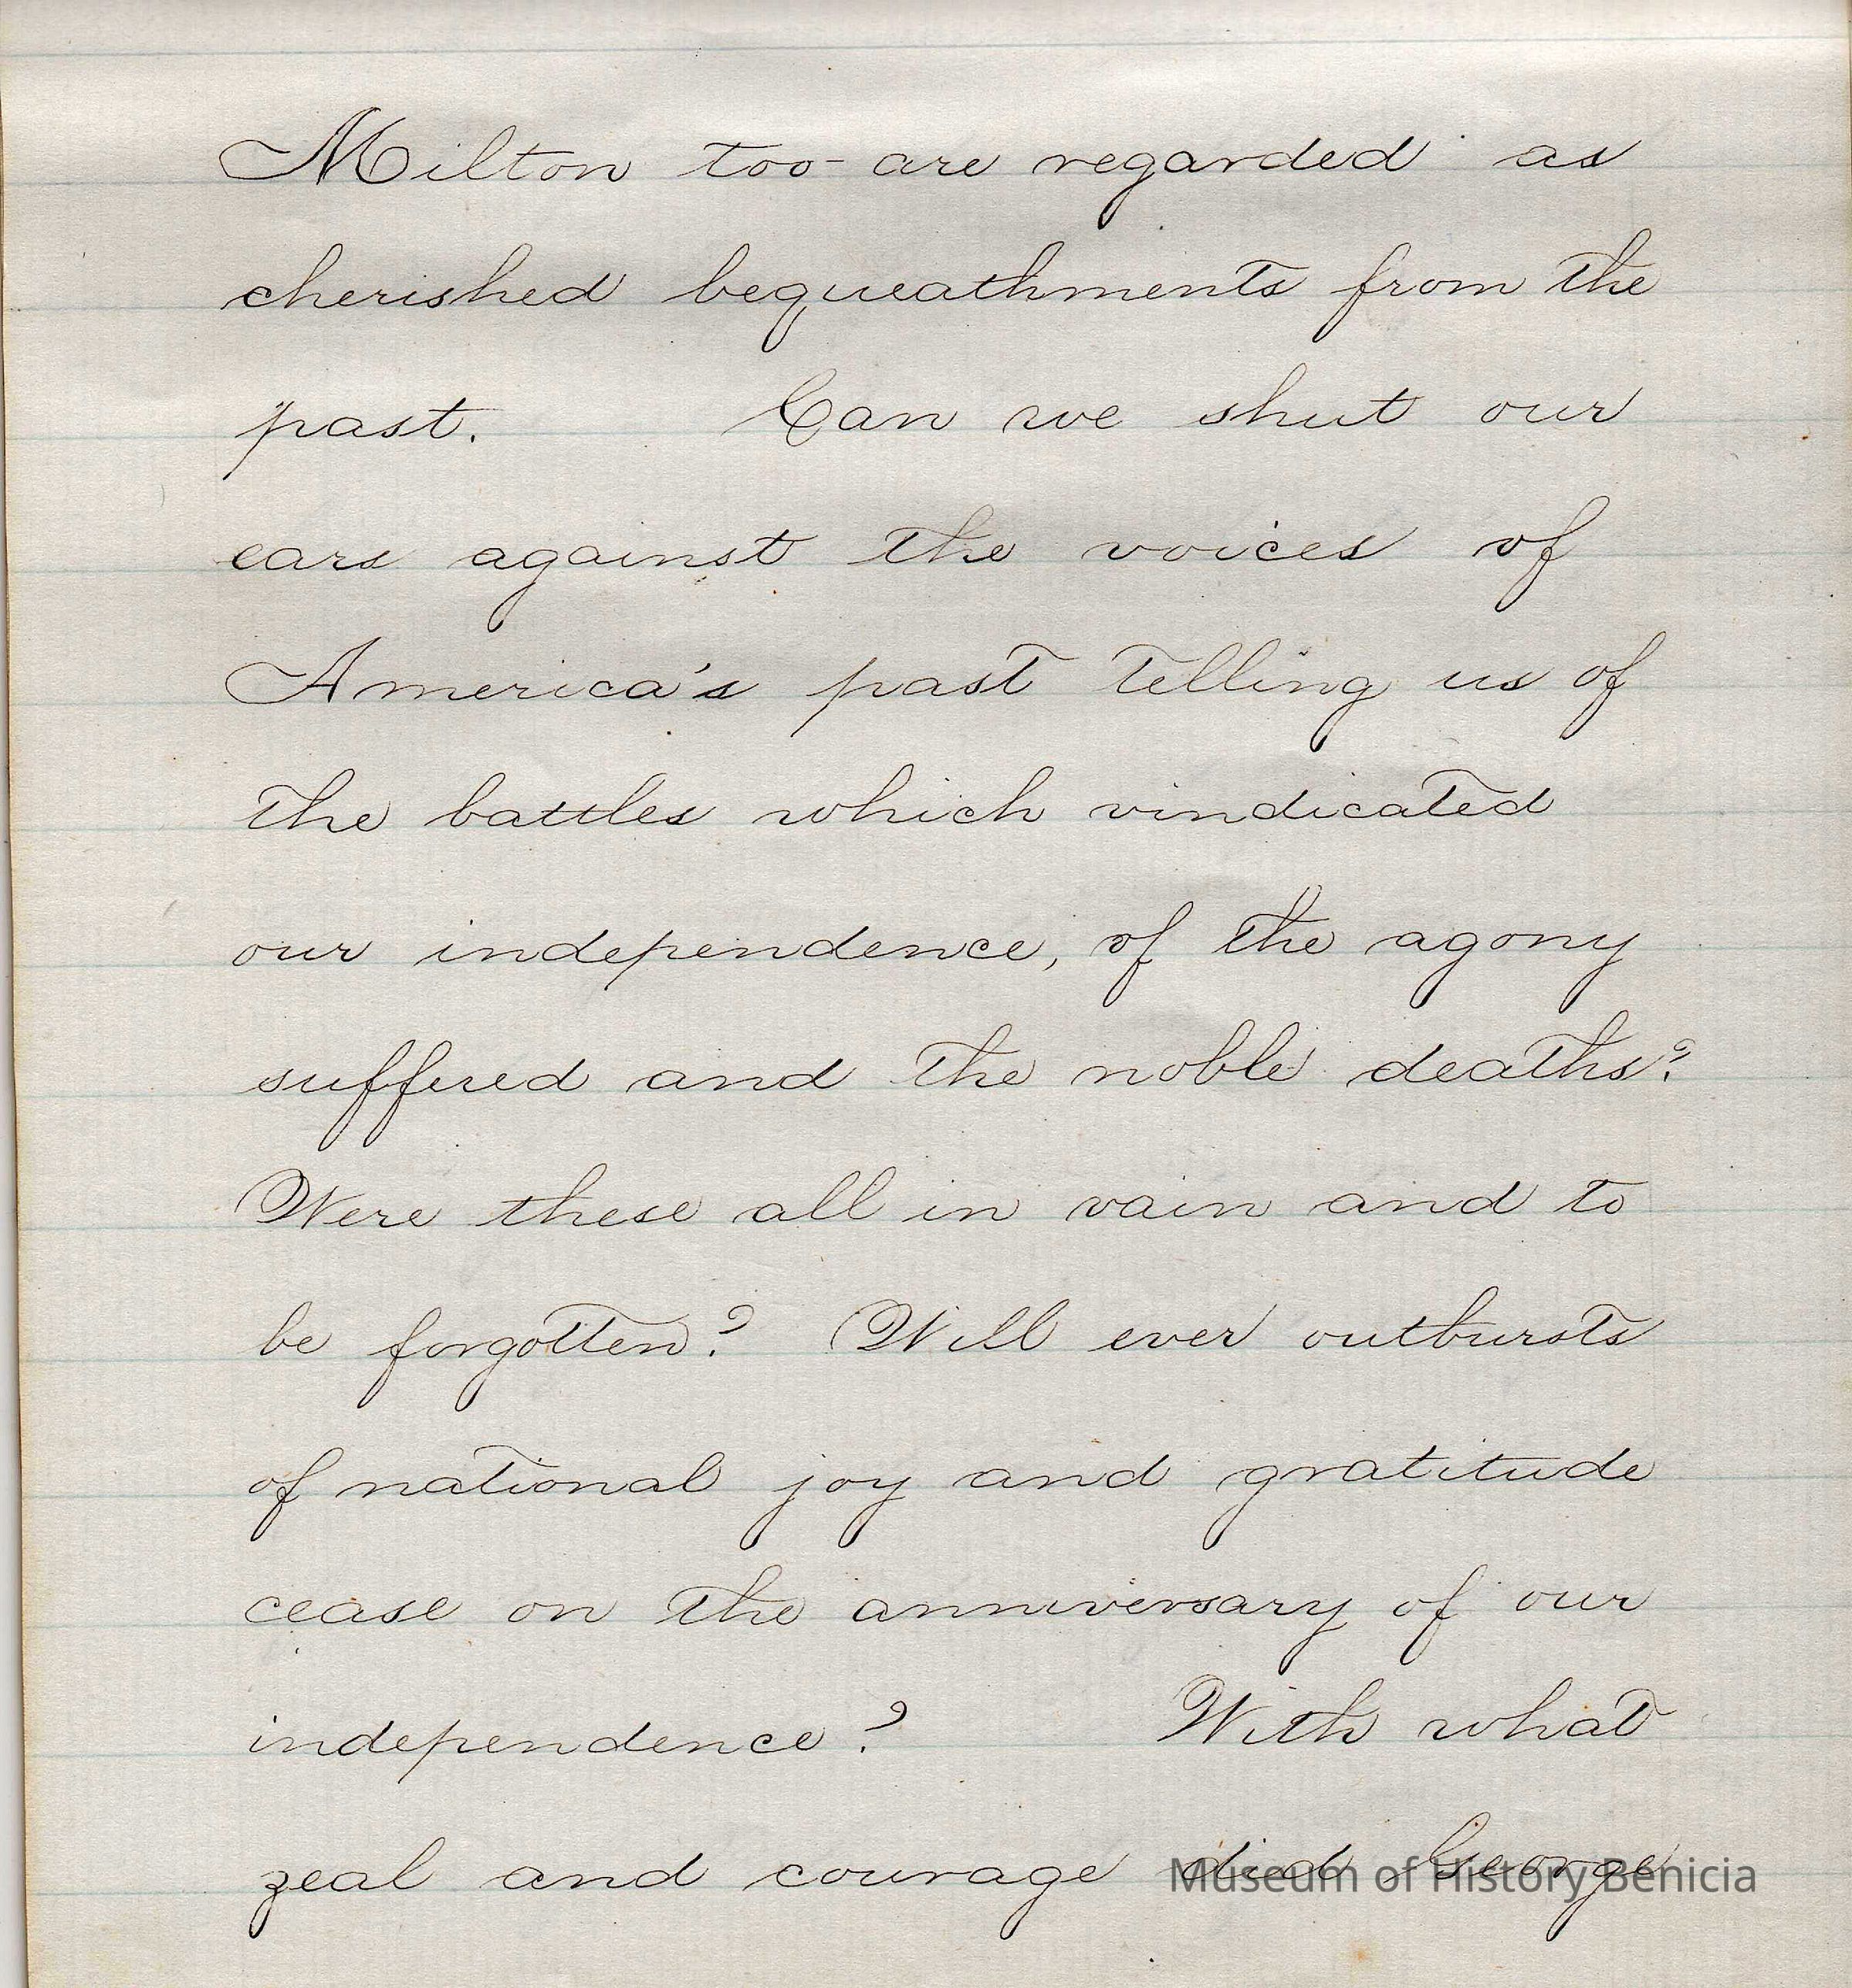 Milton too- are regarded as
cherished bequeathments from the
past. Can we shut our
ears against the voices of
America's past telling us of
the battles which vindicated
our independence, of the agony
suffered and the noble deaths?
Were these all in vain and to
be forgotten? Will ever outbursts
of national joy and gratitude
cease on the anniversary of our
independence? With what
zeal and courage did George
Museum of History Benicia